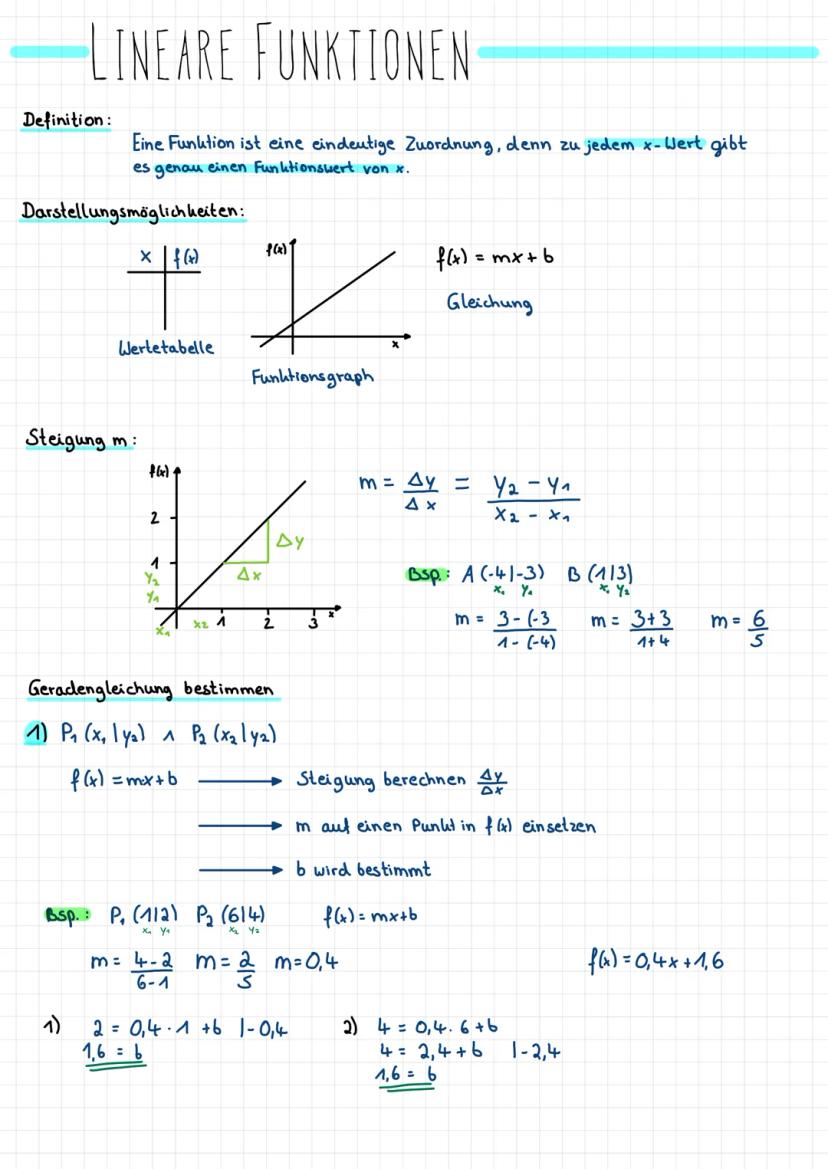 LINEARE FUNKTIONEN
Definition:
Eine Funktion ist eine eindeutige Zuordnung, denn zu jedem x-Wert gibt
es genau einen Funktionswert von x.
Darstellungsmöglichkeiten:
x | f(x)
Wertetabelle
f(x)
x
Funktionsgraph
f(x) = mx + b
Gleichung
Steigung m:
f(x)
2
1
y₂
y₁
x₁
x₂
1 2 3 x
Δx
Δy
m = Δy/Δx = (y₂ - y₁)/(x₂ - x₁)
Bsp.: A (-4|-3) B (1|3)
x₁ y₁ x₁ y₂
m = 3-(-3/1-(-4) m = 3+3/1+4 m = 6/5
Geradengleichung bestimmen
1) P₁ (x₁|y₂) ∧ P₂ (x₂|y₂)
f(x) = mx+b → Steigung berechnen Δy/Δx
→ m auf einen Punkt in f(x) einsetzen
→ b wird bestimmt
Bsp.: P₁ (1|2) P₂ (6|4) f(x) = mx+b
x₁ y₁ x₂ y₂
m = 4-2/6-1 m = 2/5 m = 0,4 f(x) = 0,4x + 1,6
1) 2 = 0,4 · 1 + b |-0,4
1,6 = b
2) 4 = 0,4 · 6 + b
4 = 2,4 + b |-2,4
1,6 = b